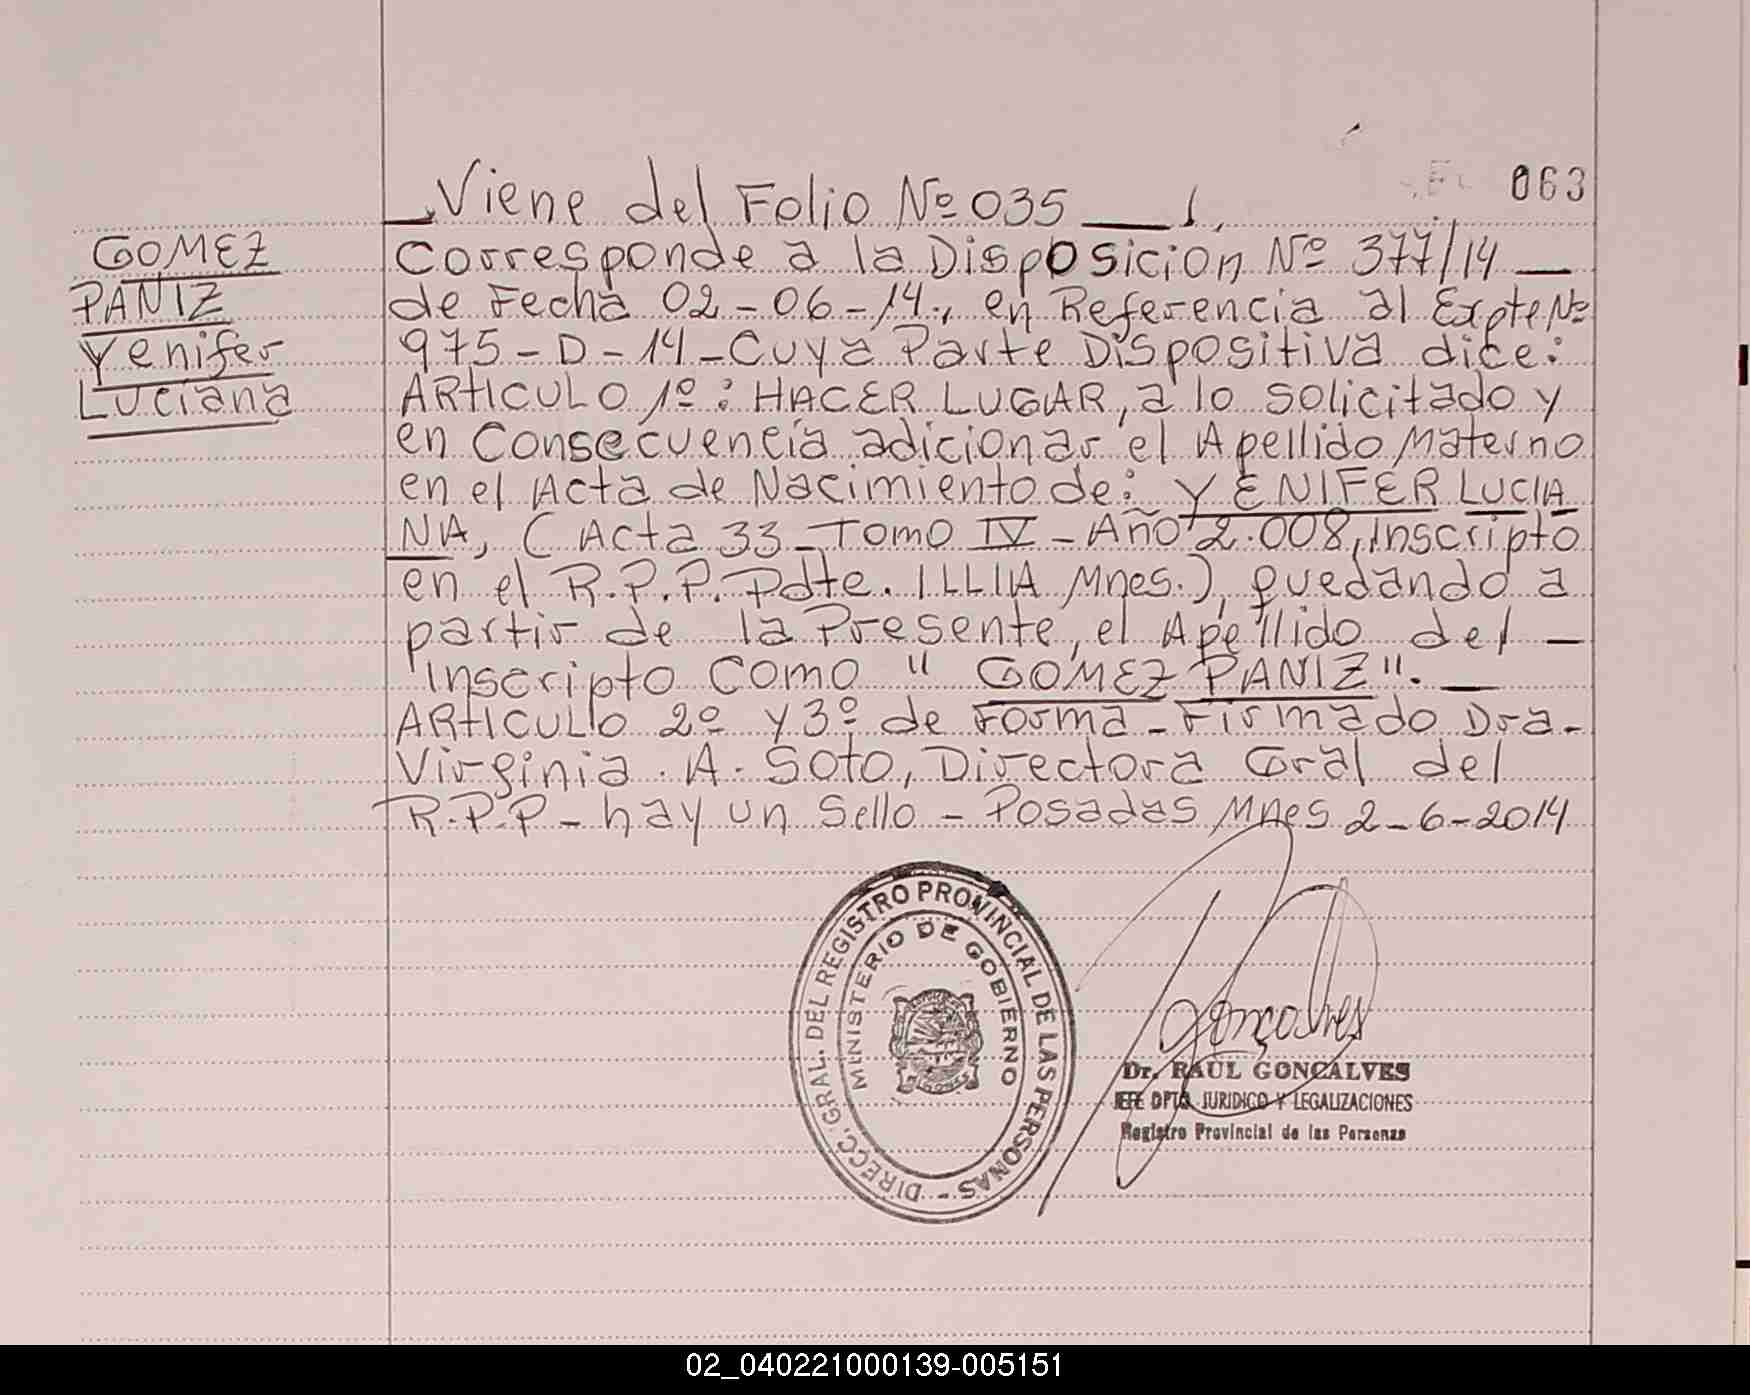 063
Viene del Folio Nº 035
GOMEZ
PANIZ
Yenifer
Luciana
Corresponde a la Disposición Nº 377/14
de Fecha 02-06-14., en Referencia al Expte Nº
975-D-14-Cuya Parte Dispositiva dice:
ARTICULO 1º: HACER LUGAR, a lo solicitado y
en Consecuencia adicionar el Apellido Materno
en el Acta de Nacimiento de: YENIFER LUCIA
NA, (Acta 33-Tomo IV-Año 2.008, inscripto
en el R.P.P. Pdte. ILLIA Mnes.), quedando a
partir de la Presente, el Apellido del
inscripto como "GOMEZ PANIZ".
ARTICULO 2º y 3º de Forma-Firmado Dra.
Virginia.A.Soto, Directora Gral del
R.P.P-hay un Sello-Posadas Mnes 2-6-2014
DIRECC. GRAL. DEL REGISTRO PROVINCIAL DE LAS PERSONAS -
MINISTERIO DE GOBIERNO
Goncalves
Dr. RAUL GONCALVES
JEFE DPTO. JURIDICO Y LEGALIZACIONES
Registro Provincial de las Personas
02_040221000139-005151